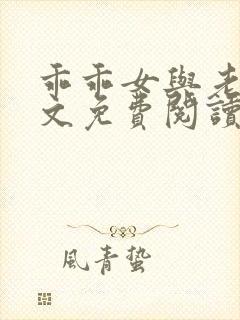 乖乖女與老
文免費閱讀
風青蟄